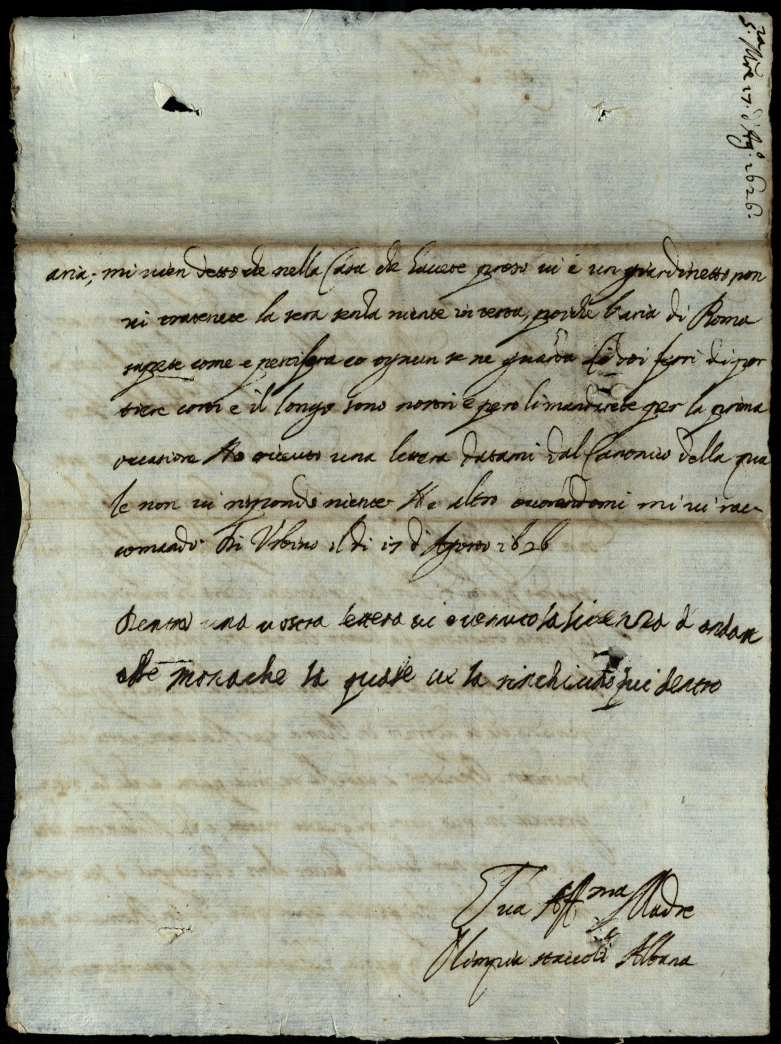 S.ra M.re 17. d'Ag.o 1626.
aria; mi vien detto che nella Casa che havete preso vi è un giardinetto non
vi tratenete la sera senza niente in testa, perche l'aria di Roma
sapete come è ognun se ne guarda li doi fori di por
tiere corti e il longo sono nostri e però li mandarete per la prima
occasione Ho riceuto una lettera datami dal Canonico della qua
le non vi rispondo niente Ne altro mi vi rac-
comando Di Urbino il di 17 di Agosto 1626
Dentro una vostra lettera vi è venuto la licenza d'andare
alle monache la quale ve la rinchiudo qui dentro
Tua Aff.ma Madre
Olimpia staccoli Albana